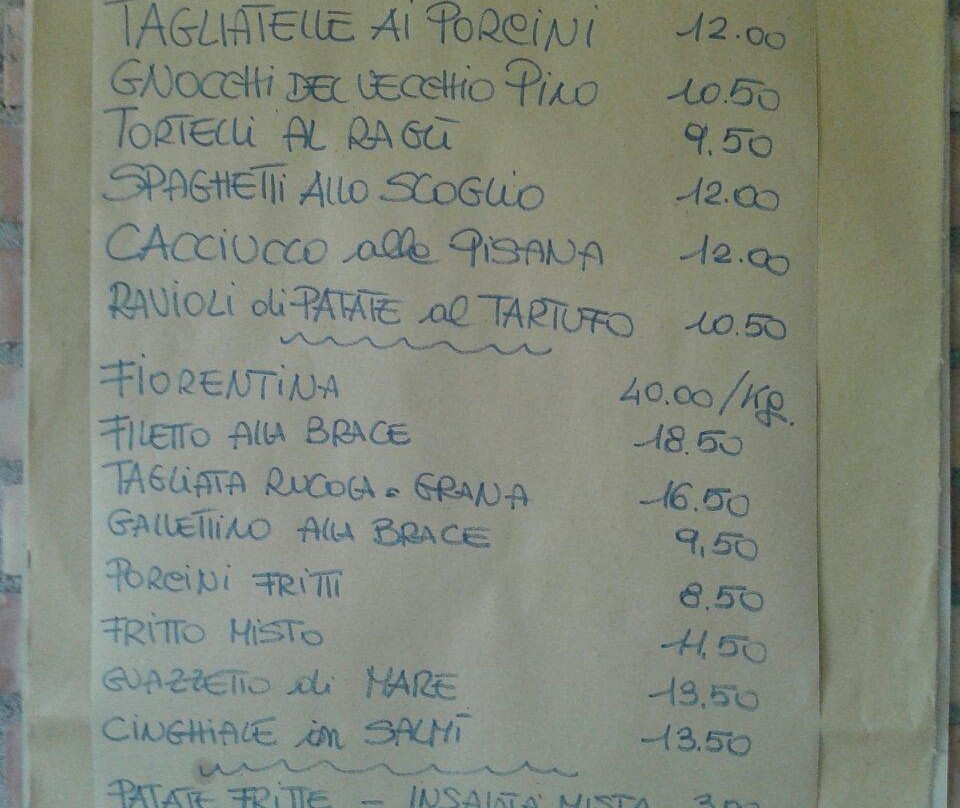 TAGLIATELLE Ai PORCiNi 12.00
GNOCCHi DEL VECCHiO PiNO 10.50
TORTELLi AL RAGÙ 9.50
SPAGHETTi ALLO SCOGLiO 12.00
CACCIUCCO alla PISANA 12.00
RAVIOLi di PATATE al TARTUFO 10.50
FiORENTiNA 40.00/Kg.
FiLETTO ALLA BRACE 18.50
TAGLiATA RUCOLA e GRANA 16.50
GALLETTiNO ALLA BRACE 9,50
PORCiNi FRiTTi 8.50
FRiTTO MiSTO 11,50
GUAZZETTO di MARE 13,50
CiNGHiALE in SALMÌ 13.50
PATATE FRiTTE - INSALATA MISTA 3,00